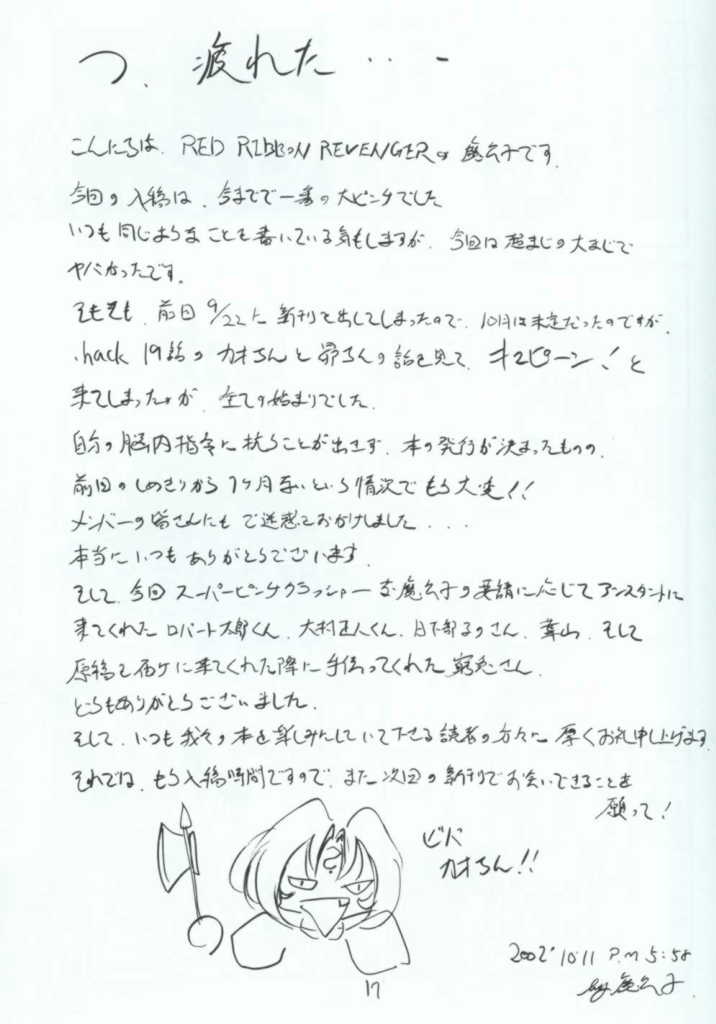 つ、疲れた・・・ー
こんにちは、RED RIBBON REVENGERの魔公子です。
今回の入稿は、今までで一番の大ピンチでした
いつも同じようなことを書いている気もしますが、今回は超まじの大まじで
ヤバかったです。
そもそも、前回9/22に新刊を出してしまったので、10月は未定だったのですが、
.hack 19話のカオちんと昴ちんの話を見て、キュピーン!と
来てしまったのが、全ての始まりでした。
自分の脳内指令に抗うことが出きず、本の発行が決まったものの、
前回のしめきりから1ヶ月ないという情況でもう大変!!
メンバーの皆さんにもご迷惑をおかけしました...
本当にいつもありがとうございます。
そして、今回スーパーピンチクラッシャーな魔公子の要請に応じてアシスタントに
来てくれたロバート太郎くん、大村正人くん、日下部るのさん、葉山、そして
原稿を届けに来てくれた際に手伝ってくれた窮兎さん、
どうもありがとうございました。
そして、いつも我々の本を楽しみにしていて下さる読者の方々に厚くお礼申し上げます
それでは、もう入稿時間ですので、また次回の新刊でお会いできることを
願って!
ビバ
カオちん!!
2002'10.11 P.M 5:58
by 魔公子
17